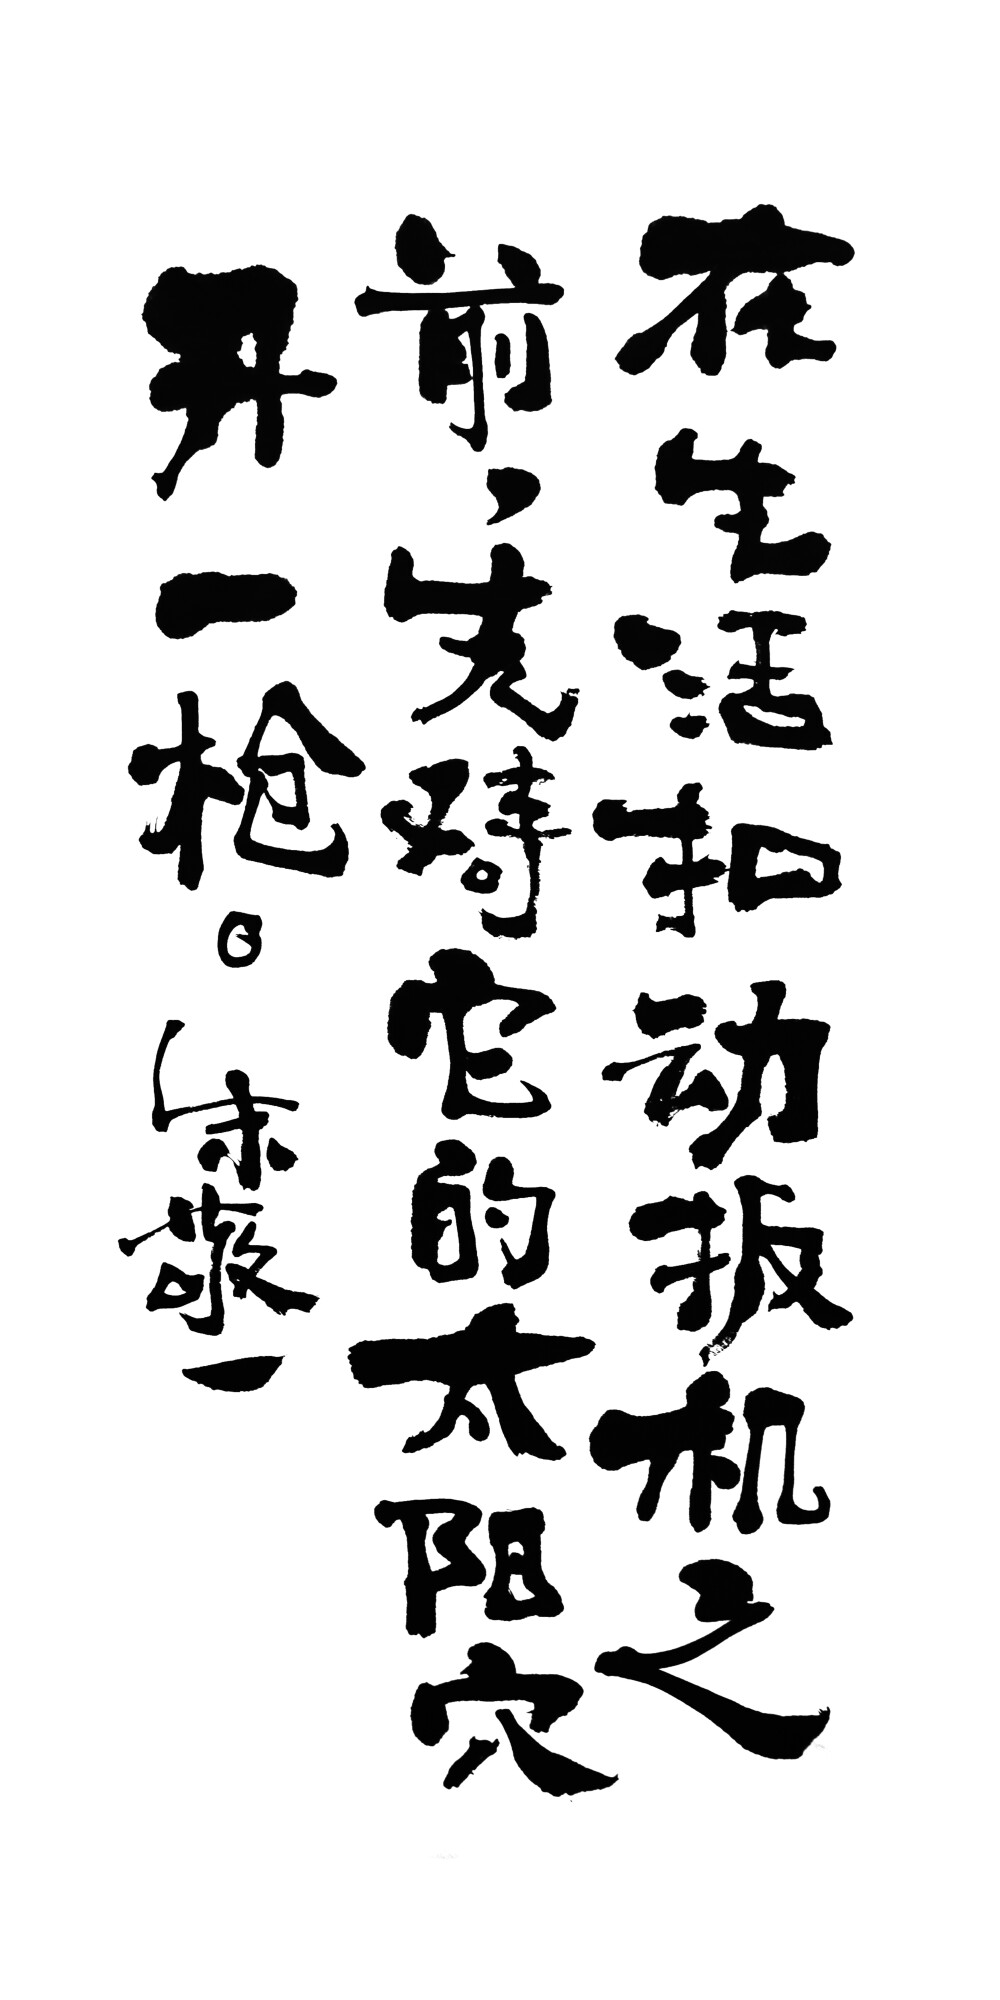 在生活扣动扳机之
前，先对它的太阳穴
开一枪。朱敬一